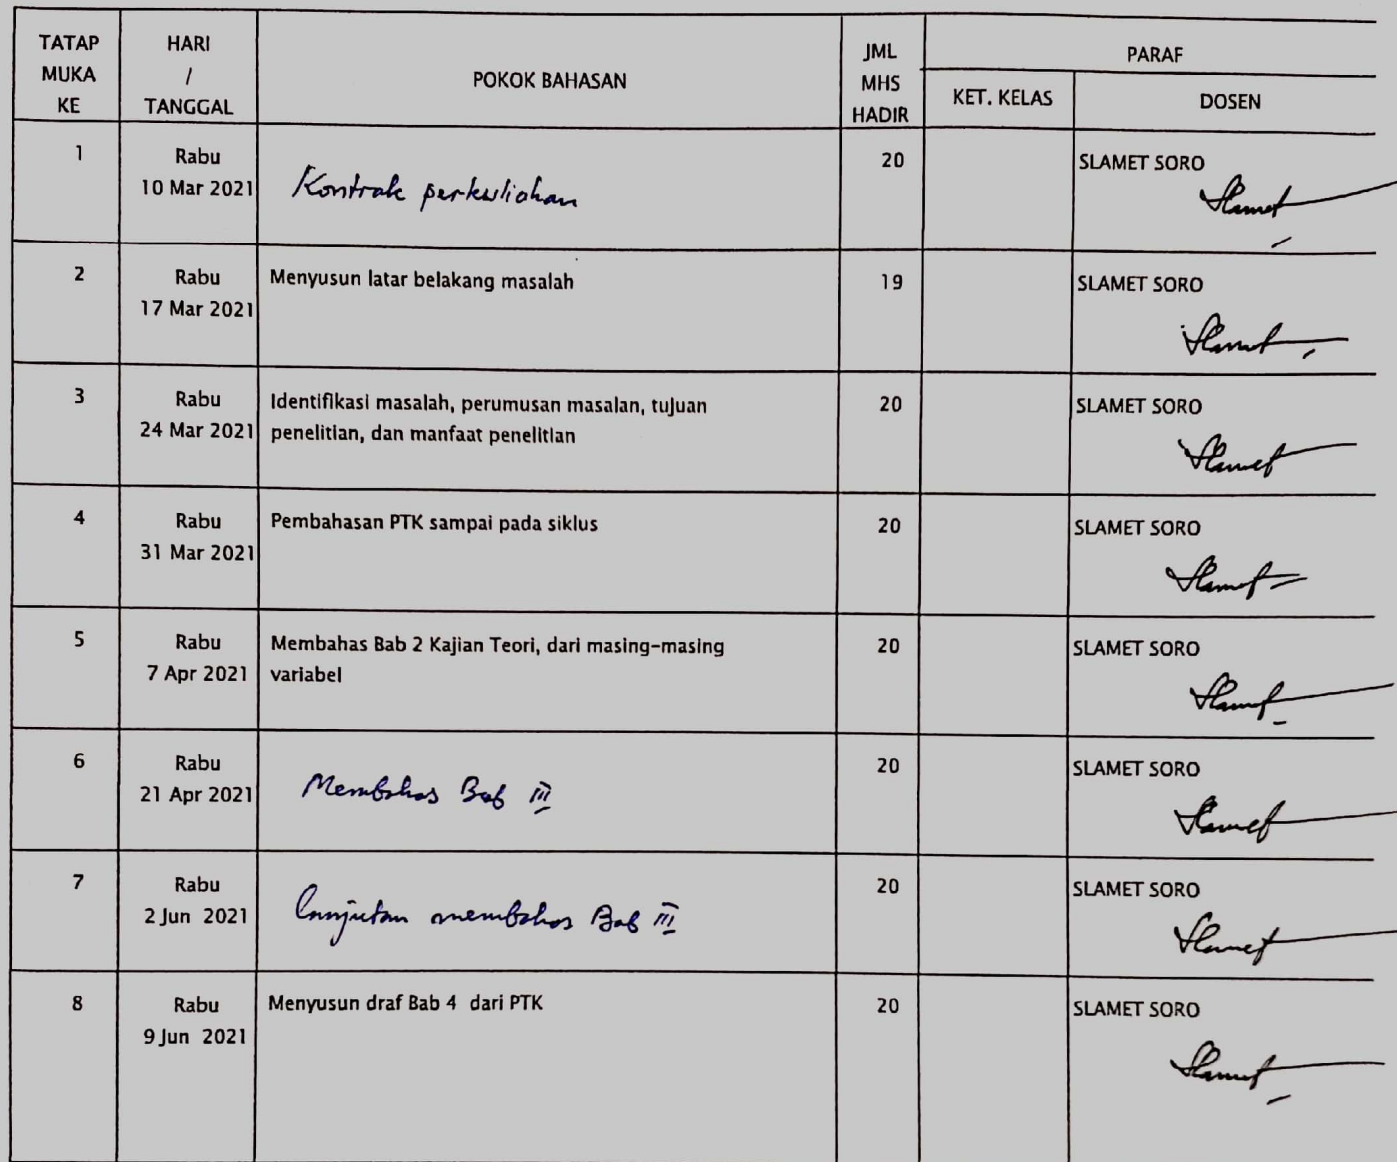 TATAP MUKA KE
HARI / TANGGAL
POKOK BAHASAN
JML MHS HADIR
PARAF
KET. KELAS
DOSEN
1
Rabu
10 Mar 2021
Kontrak perkuliahan
20
SLAMET SORO
Slamet
2
Rabu
17 Mar 2021
Menyusun latar belakang masalah
19
SLAMET SORO
Slamet
3
Rabu
24 Mar 2021
Identifikasi masalah, perumusan masalan, tujuan
penelitian, dan manfaat penelitian
20
SLAMET SORO
Slamet
4
Rabu
31 Mar 2021
Pembahasan PTK sampai pada siklus
20
SLAMET SORO
Slamet
5
Rabu
7 Apr 2021
Membahas Bab 2 Kajian Teori, dari masing-masing
variabel
20
SLAMET SORO
Slamet
6
Rabu
21 Apr 2021
Membahas Bab III
20
SLAMET SORO
Slamet
7
Rabu
2 Jun 2021
Lanjutan membahas Bab III
20
SLAMET SORO
Slamet
8
Rabu
9 Jun 2021
Menyusun draf Bab 4 dari PTK
20
SLAMET SORO
Slamet